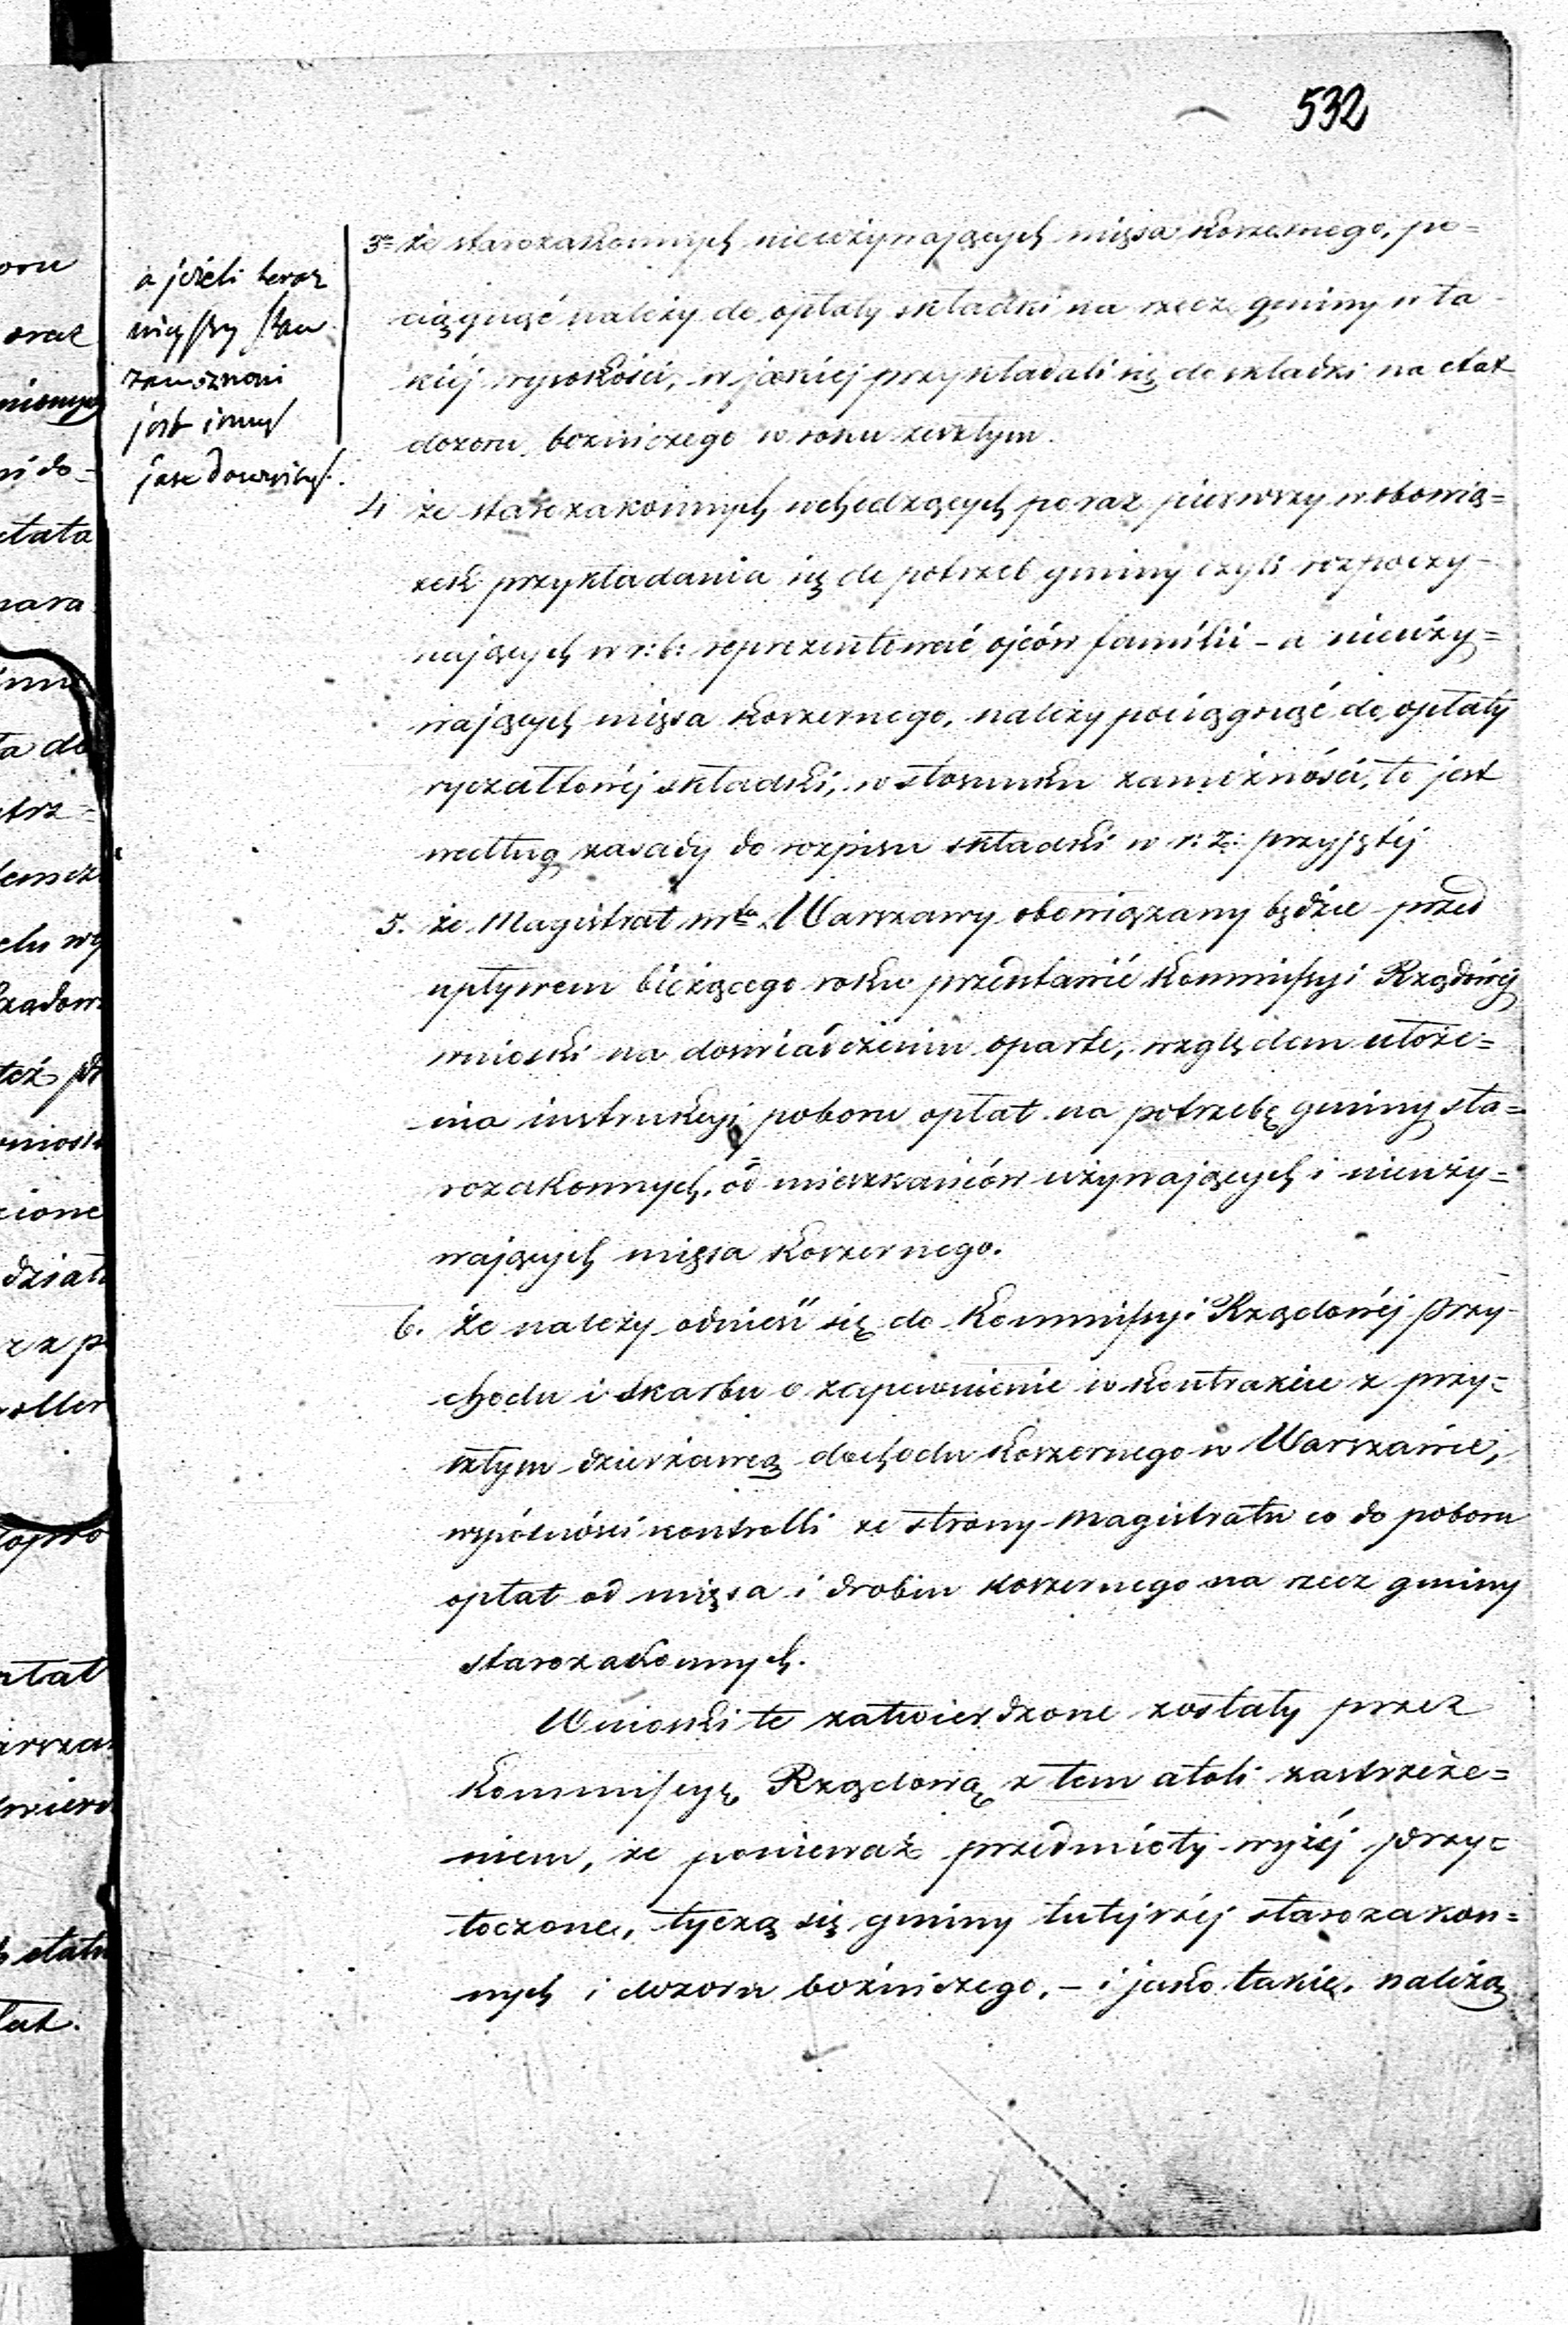 532
a jeżeli teraz
stan
zamożności
jest innym
jak dawniej.
3º że starozakonnych nieużywających mięsa koszernego, po=
ciągnąć należy do opłaty składki na rzecz gminy w ta-
kiej wysokości, w jakiej przykładali się do składki na etat
dozoru bożniczego w roku zeszłym.
4 że starozakonnych wchodzących po raz pierwszy w obowią=
zek przykładania się do potrzeb gminy czyli rozpoczy-
nających w r: b: reprezentować ojców familii - a nieuży=
wających mięsa koszernego, należy pociągnąć do opłaty
ryczałtowéj składki, w stosunku zamożności, to jest
według zasady do rozpisu składki w r: z: przyjętéj
5. że Magistrat mta Warszawy obowiązany będzie przed
upływem bieżącego roku przedstawić Kommissyi Rządowéj
wnioski na doświadczeniu oparte, względem ułoże=
nia instrukcyi poboru opłat na potrzebę gminy sta=
rozakonnych, od mieszkańców używających i nieuży=
wających mięsa koszernego.
6. że należy odnieść się do Kommissyi Rządowéj Przy-
chodu i Skarbu o zapewnienie w kontrakcie z przy=
szłym dzierżawcą dochodu koszernego w Warszawie,
wspólności kontrolli ze strony Magistratu co do poboru
opłat od mięsa i drobiu koszernego na rzecz gminy
starozakonnych.
Wnioski te zatwierdzone zostały przez
Kommissyę Rządową z tem atoli zastrzeże=
niem, że ponieważ przedmioty wyżéj przy=
toczone, tyczą się gminy tutejszéj starozakon=
nych i dozoru bożniczego, - i jako takie, należą